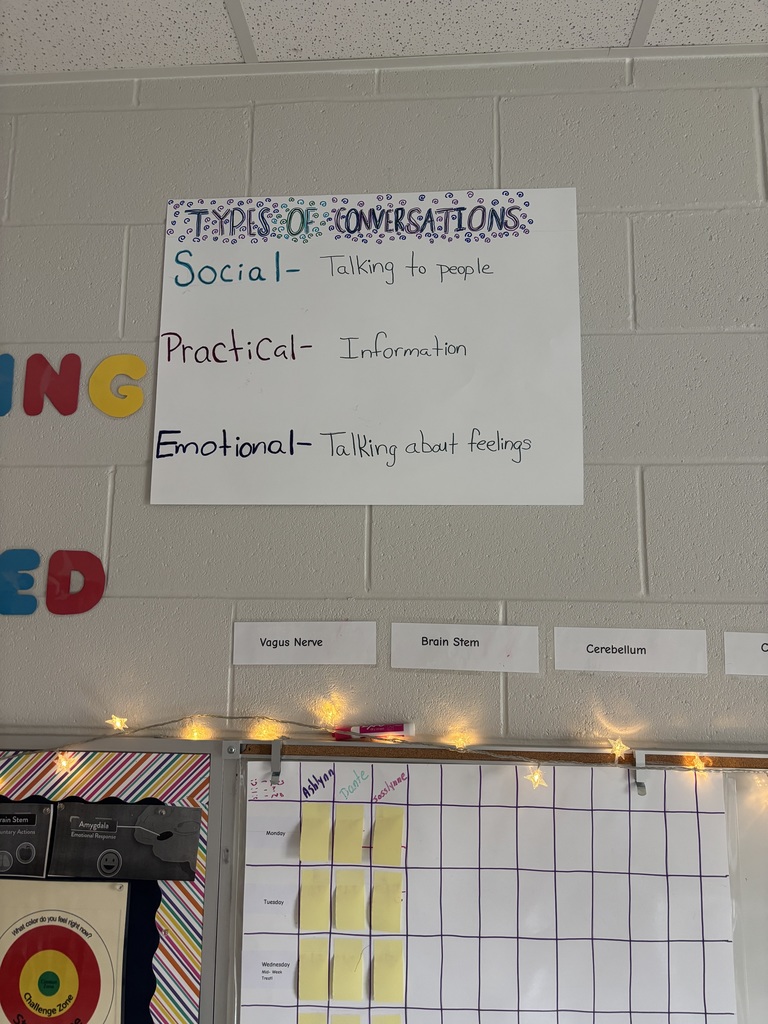 TYPES OF CONVERSATIONS
Social- Talking to people
Practical- Information
Emotional- Talking about feelings
ING
ED
Vagus Nerve
Brain Stem
Cerebellum
C
Ashlynn
Dante
Josslynne
Monday
Tuesday
Wednesday
Mid-Week
Treat!
rain Stem
untary Actions
Amygdala
Emotional Response
What color do you feel right now?
Challenge Zone